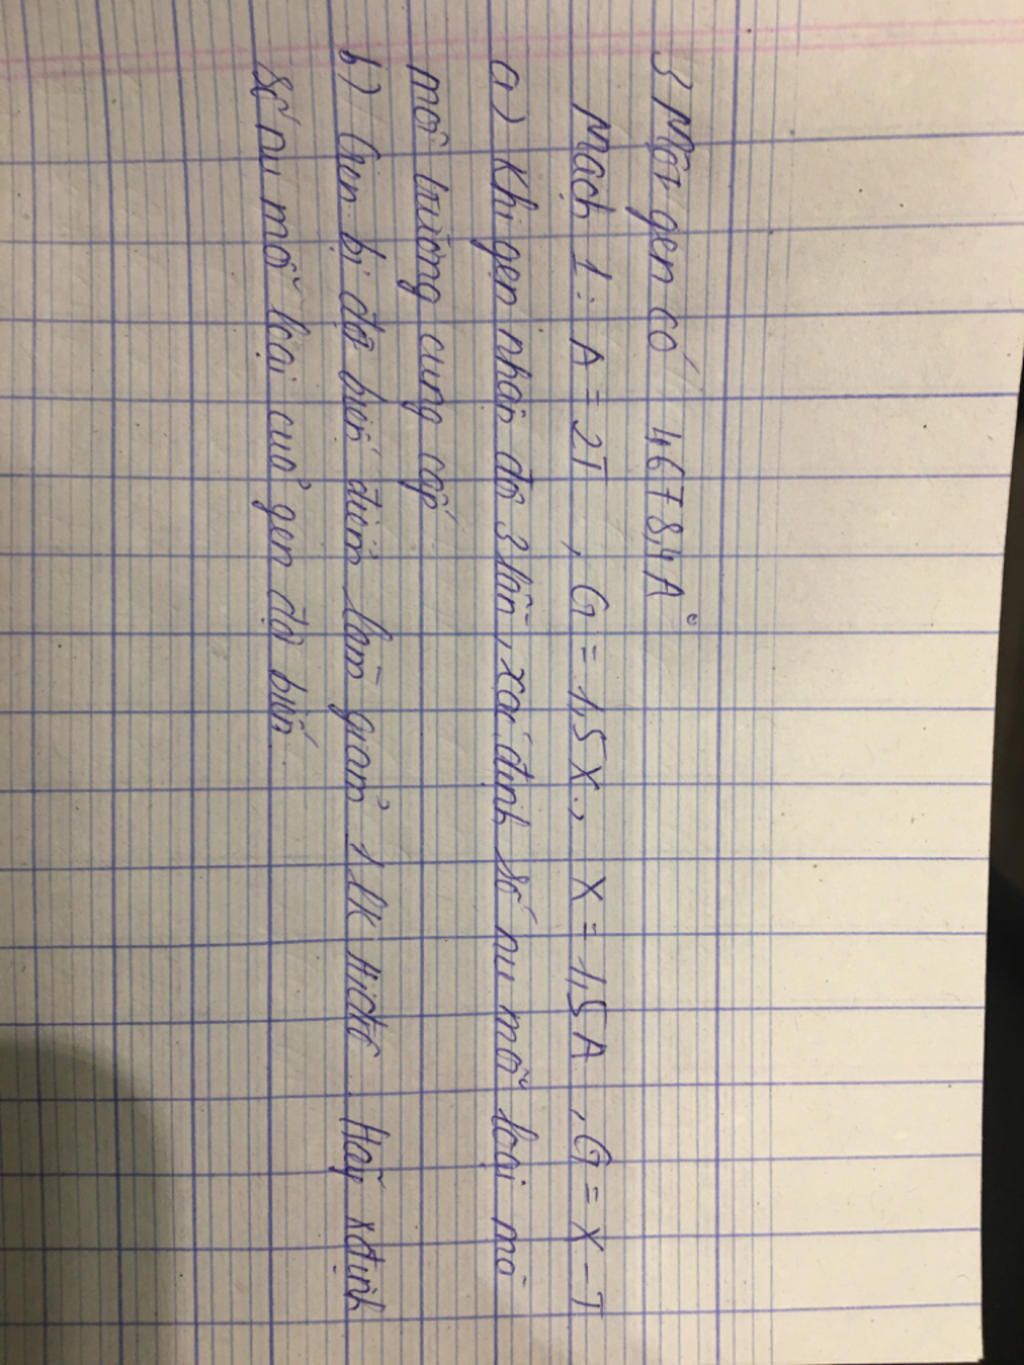 3 Một gen có 4678,4 A°
Mạch 1: A = 2T, G = 1,5X, X = 1,5A, G = X - T
a) Khi gen nhân đôi 3 lần, xác định số nu mỗi loại mà
môi trường cung cấp
b) Gen bị đột biến điểm làm giảm 1 lk Hiđrô. Hãy xđịnh
số nu mỗi loại của gen đột biến.